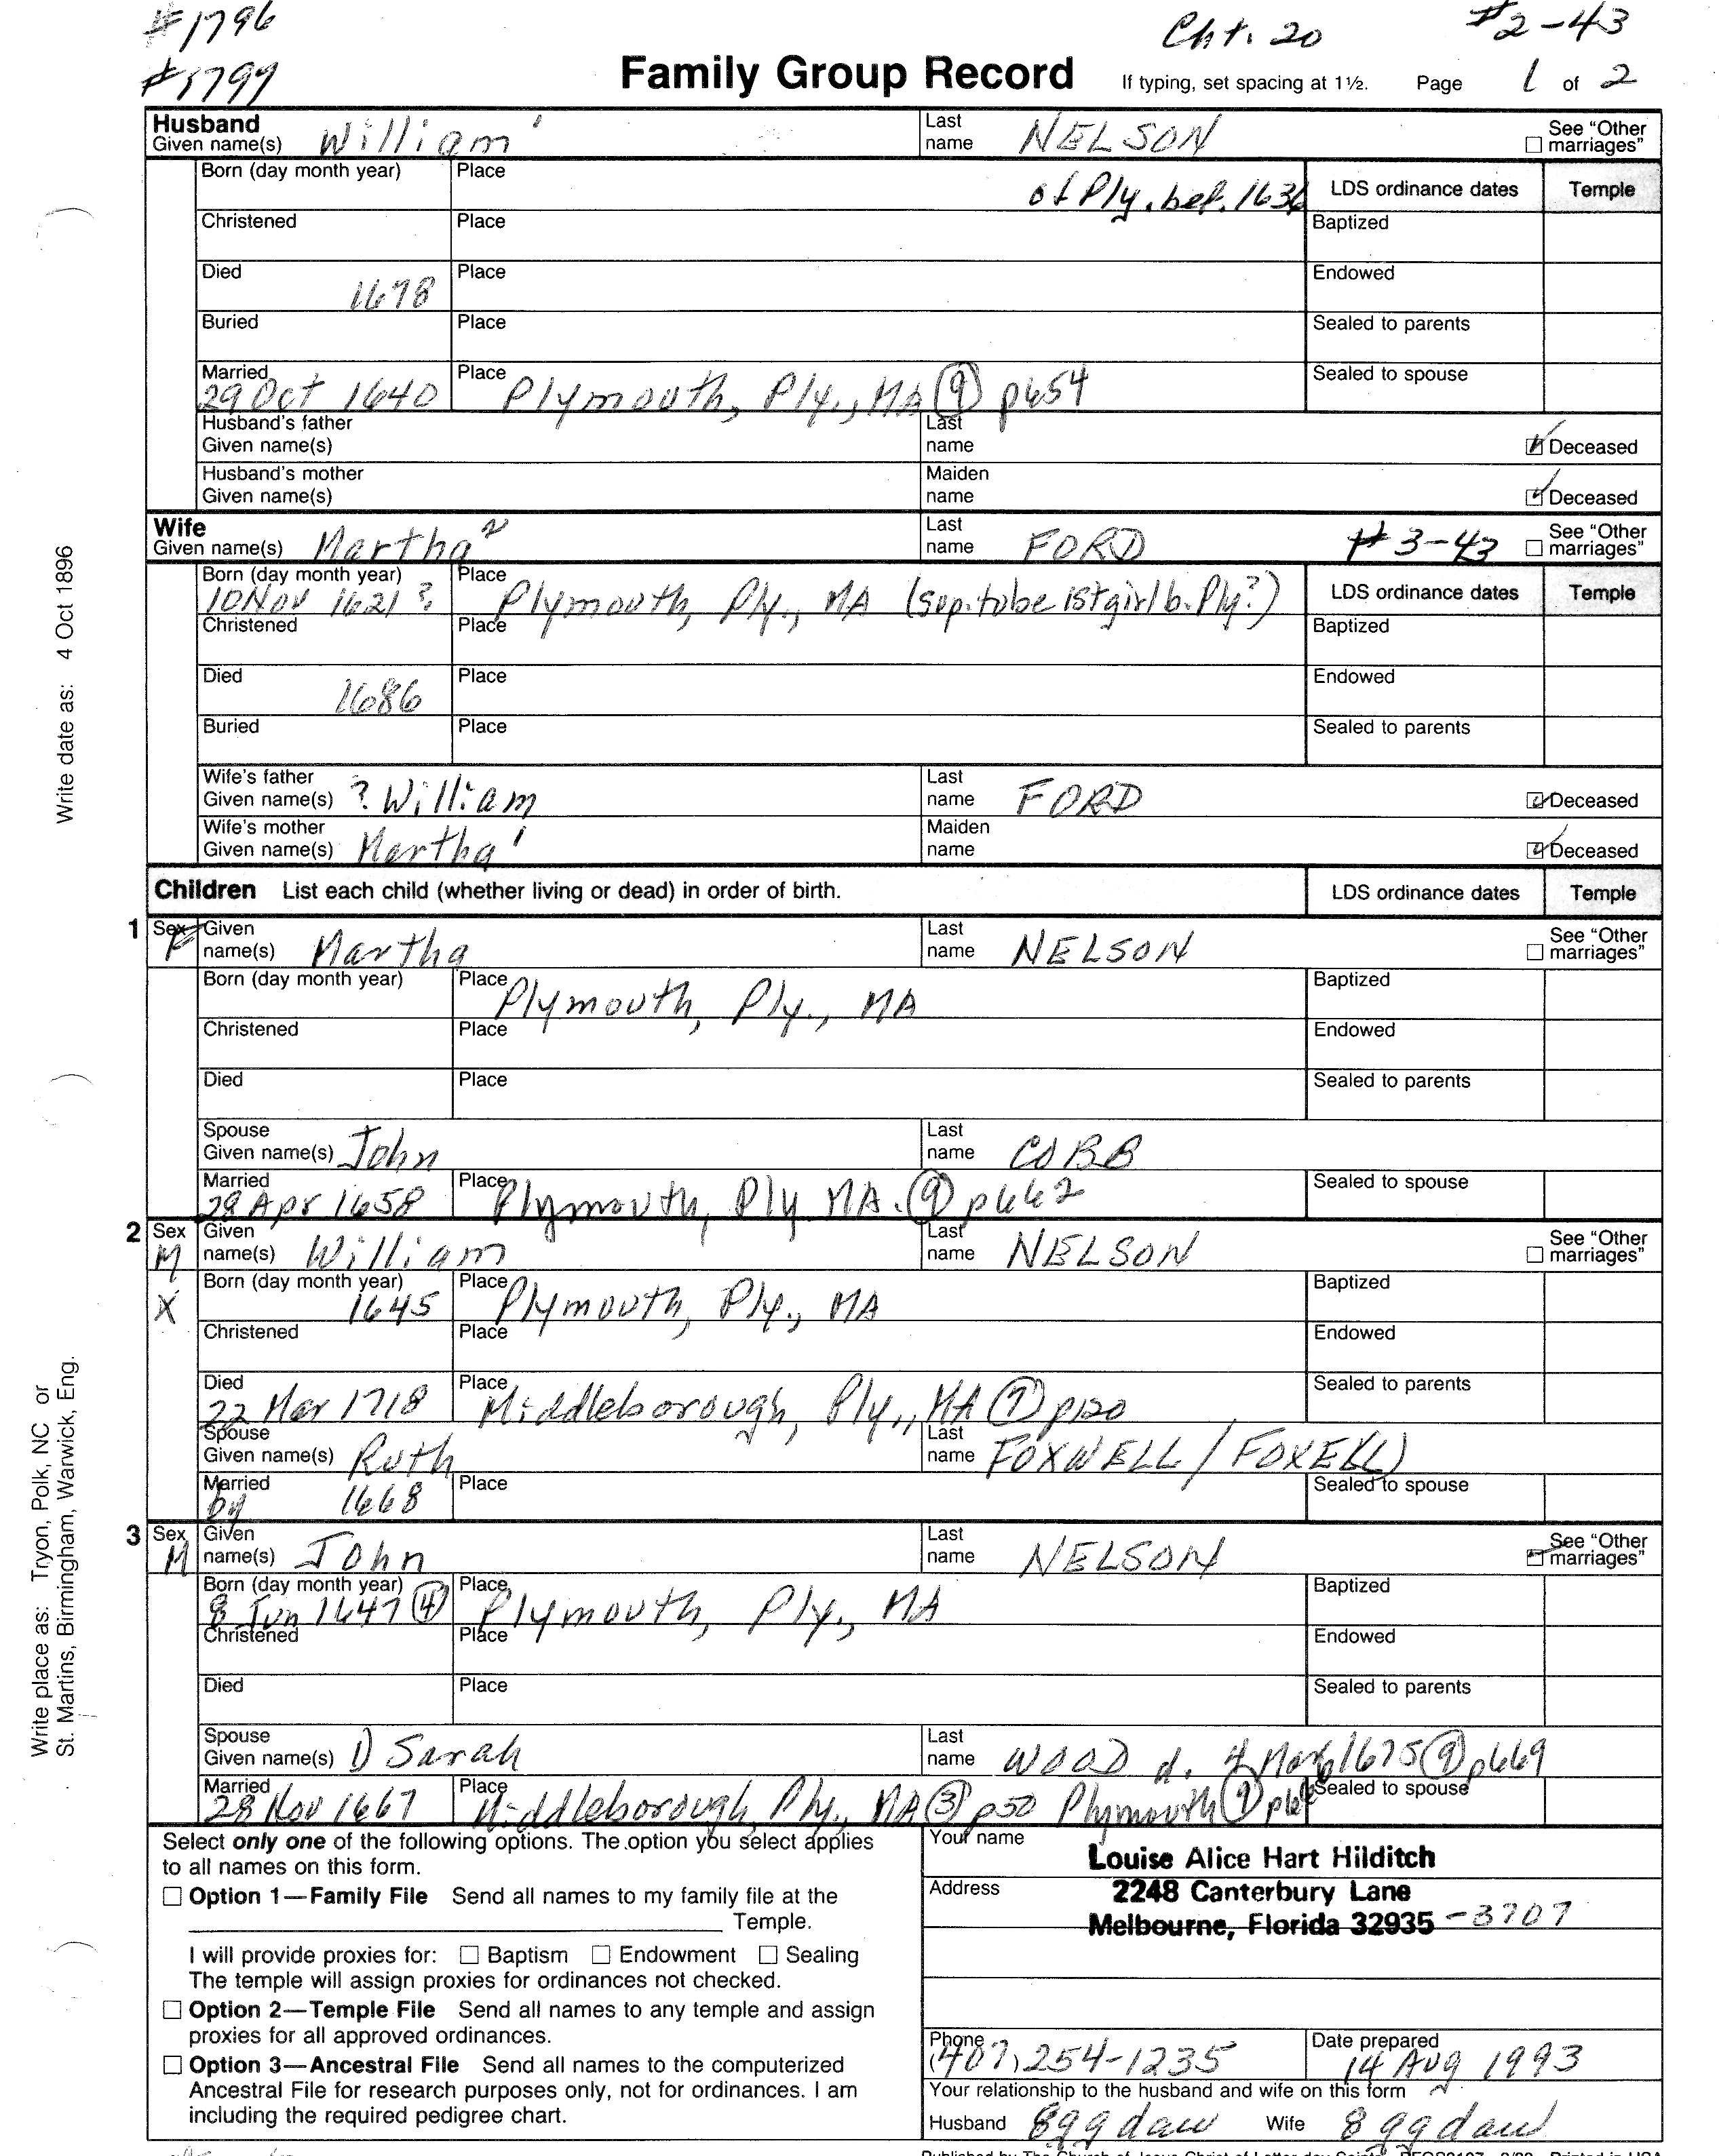 #1796 Cht. 20 #2-43
#1799 Family Group Record If typing, set spacing at 1½. Page 1 of 2
Husband
Given name(s) William¹ Last name NELSON See "Other marriages"
Born (day month year) Place of Ply. bef. 1636 LDS ordinance dates Temple
Christened Place Baptized
Died 1678 Place Endowed
Buried Place Sealed to parents
Married 29 Oct 1640 Place Plymouth, Ply., MA (9) p654 Sealed to spouse
Husband's father
Given name(s) Last name Deceased
Husband's mother
Given name(s) Maiden name Deceased
Wife
Given name(s) Martha² Last name FORD #3-43 See "Other marriages"
Born (day month year) 10 Nov 1621? Place Plymouth, Ply., MA (sup. to be 1st girl b. Ply?) LDS ordinance dates Temple
Christened Place Baptized
Died 1686 Place Endowed
Buried Place Sealed to parents
Wife's father
Given name(s) ? William Last name FORD Deceased
Wife's mother
Given name(s) Martha¹ Maiden name Deceased
Children List each child (whether living or dead) in order of birth. LDS ordinance dates Temple
1 Sex F Given name(s) Martha Last name NELSON See "Other marriages"
Born (day month year) Place Plymouth, Ply., MA Baptized
Christened Place Endowed
Died Place Sealed to parents
Spouse
Given name(s) John Last name COBB
Married 28 Apr 1658 Place Plymouth, Ply MA. (9) p662 Sealed to spouse
2 Sex M Given name(s) William Last name NELSON See "Other marriages"
X Born (day month year) 1645 Place Plymouth, Ply., MA Baptized
Christened Place Endowed
Died 22 Mar 1718 Place Middleborough, Ply., MA (7) p120 Sealed to parents
Spouse
Given name(s) Ruth Last name FOXWELL / FOXELL)
Married by 1668 Place Sealed to spouse
3 Sex M Given name(s) John Last name NELSON See "Other marriages"
Born (day month year) 8 Jun 1647 (4) Place Plymouth, Ply., MA Baptized
Christened Place Endowed
Died Place Sealed to parents
Spouse
Given name(s) 1) Sarah Last name WOOD d. 4 Mar 1675 (9) p669
Married 28 Nov 1667 Place Middleborough, Ply., MA (3) p50 Plymouth (9) Sealed to spouse
Select only one of the following options. The option you select applies
to all names on this form.
Option 1—Family File Send all names to my family file at the
Temple.
I will provide proxies for: Baptism Endowment Sealing
The temple will assign proxies for ordinances not checked.
Option 2—Temple File Send all names to any temple and assign
proxies for all approved ordinances.
Option 3—Ancestral File Send all names to the computerized
Ancestral File for research purposes only, not for ordinances. I am
including the required pedigree chart.
Your name Louise Alice Hart Hilditch
Address 2248 Canterbury Lane
Melbourne, Florida 32935-3707
Phone (407) 254-1235 Date prepared 14 Aug 1993
Your relationship to the husband and wife on this form
Husband 8 gg daw Wife 8 gg daw
Write date as: 4 Oct 1896
Write place as: Tryon, Polk, NC or
St. Martins, Birmingham, Warwick, Eng.